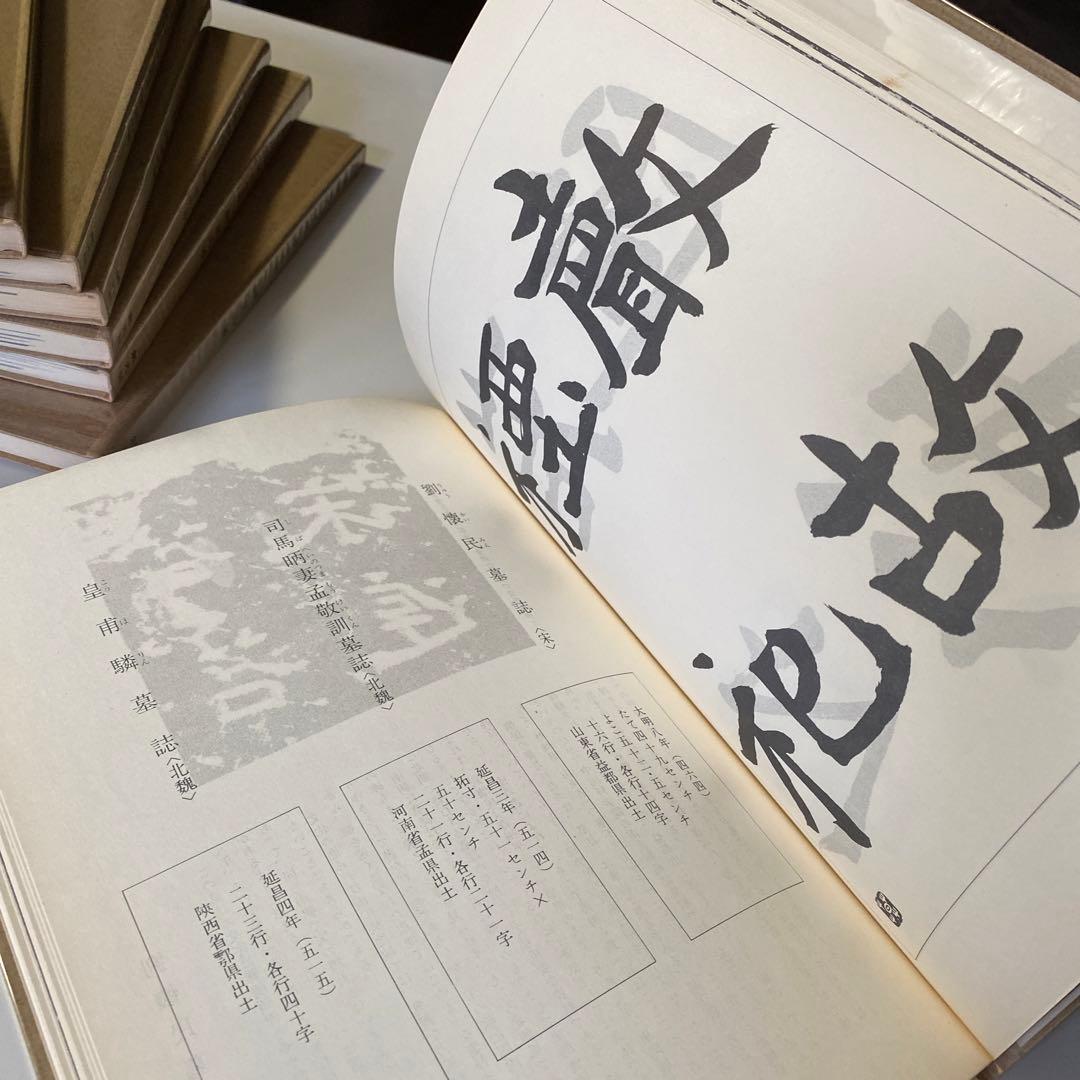 故
祀
劉懐民墓誌〈宋〉
大明八年(四六四)
たて四十九センチ
よこ五十二・五センチ
十六行・各行十四字
山東省益都県出土
司馬昞妻孟敬訓墓誌〈北魏〉
延昌三年(五一四)
拓寸・五十一センチ×
五十センチ
二十一行・各行二十一字
河南省孟県出土
皇甫驎墓誌〈北魏〉
延昌四年(五一五)
二十三行・各行四十字
陝西省鄠県出土